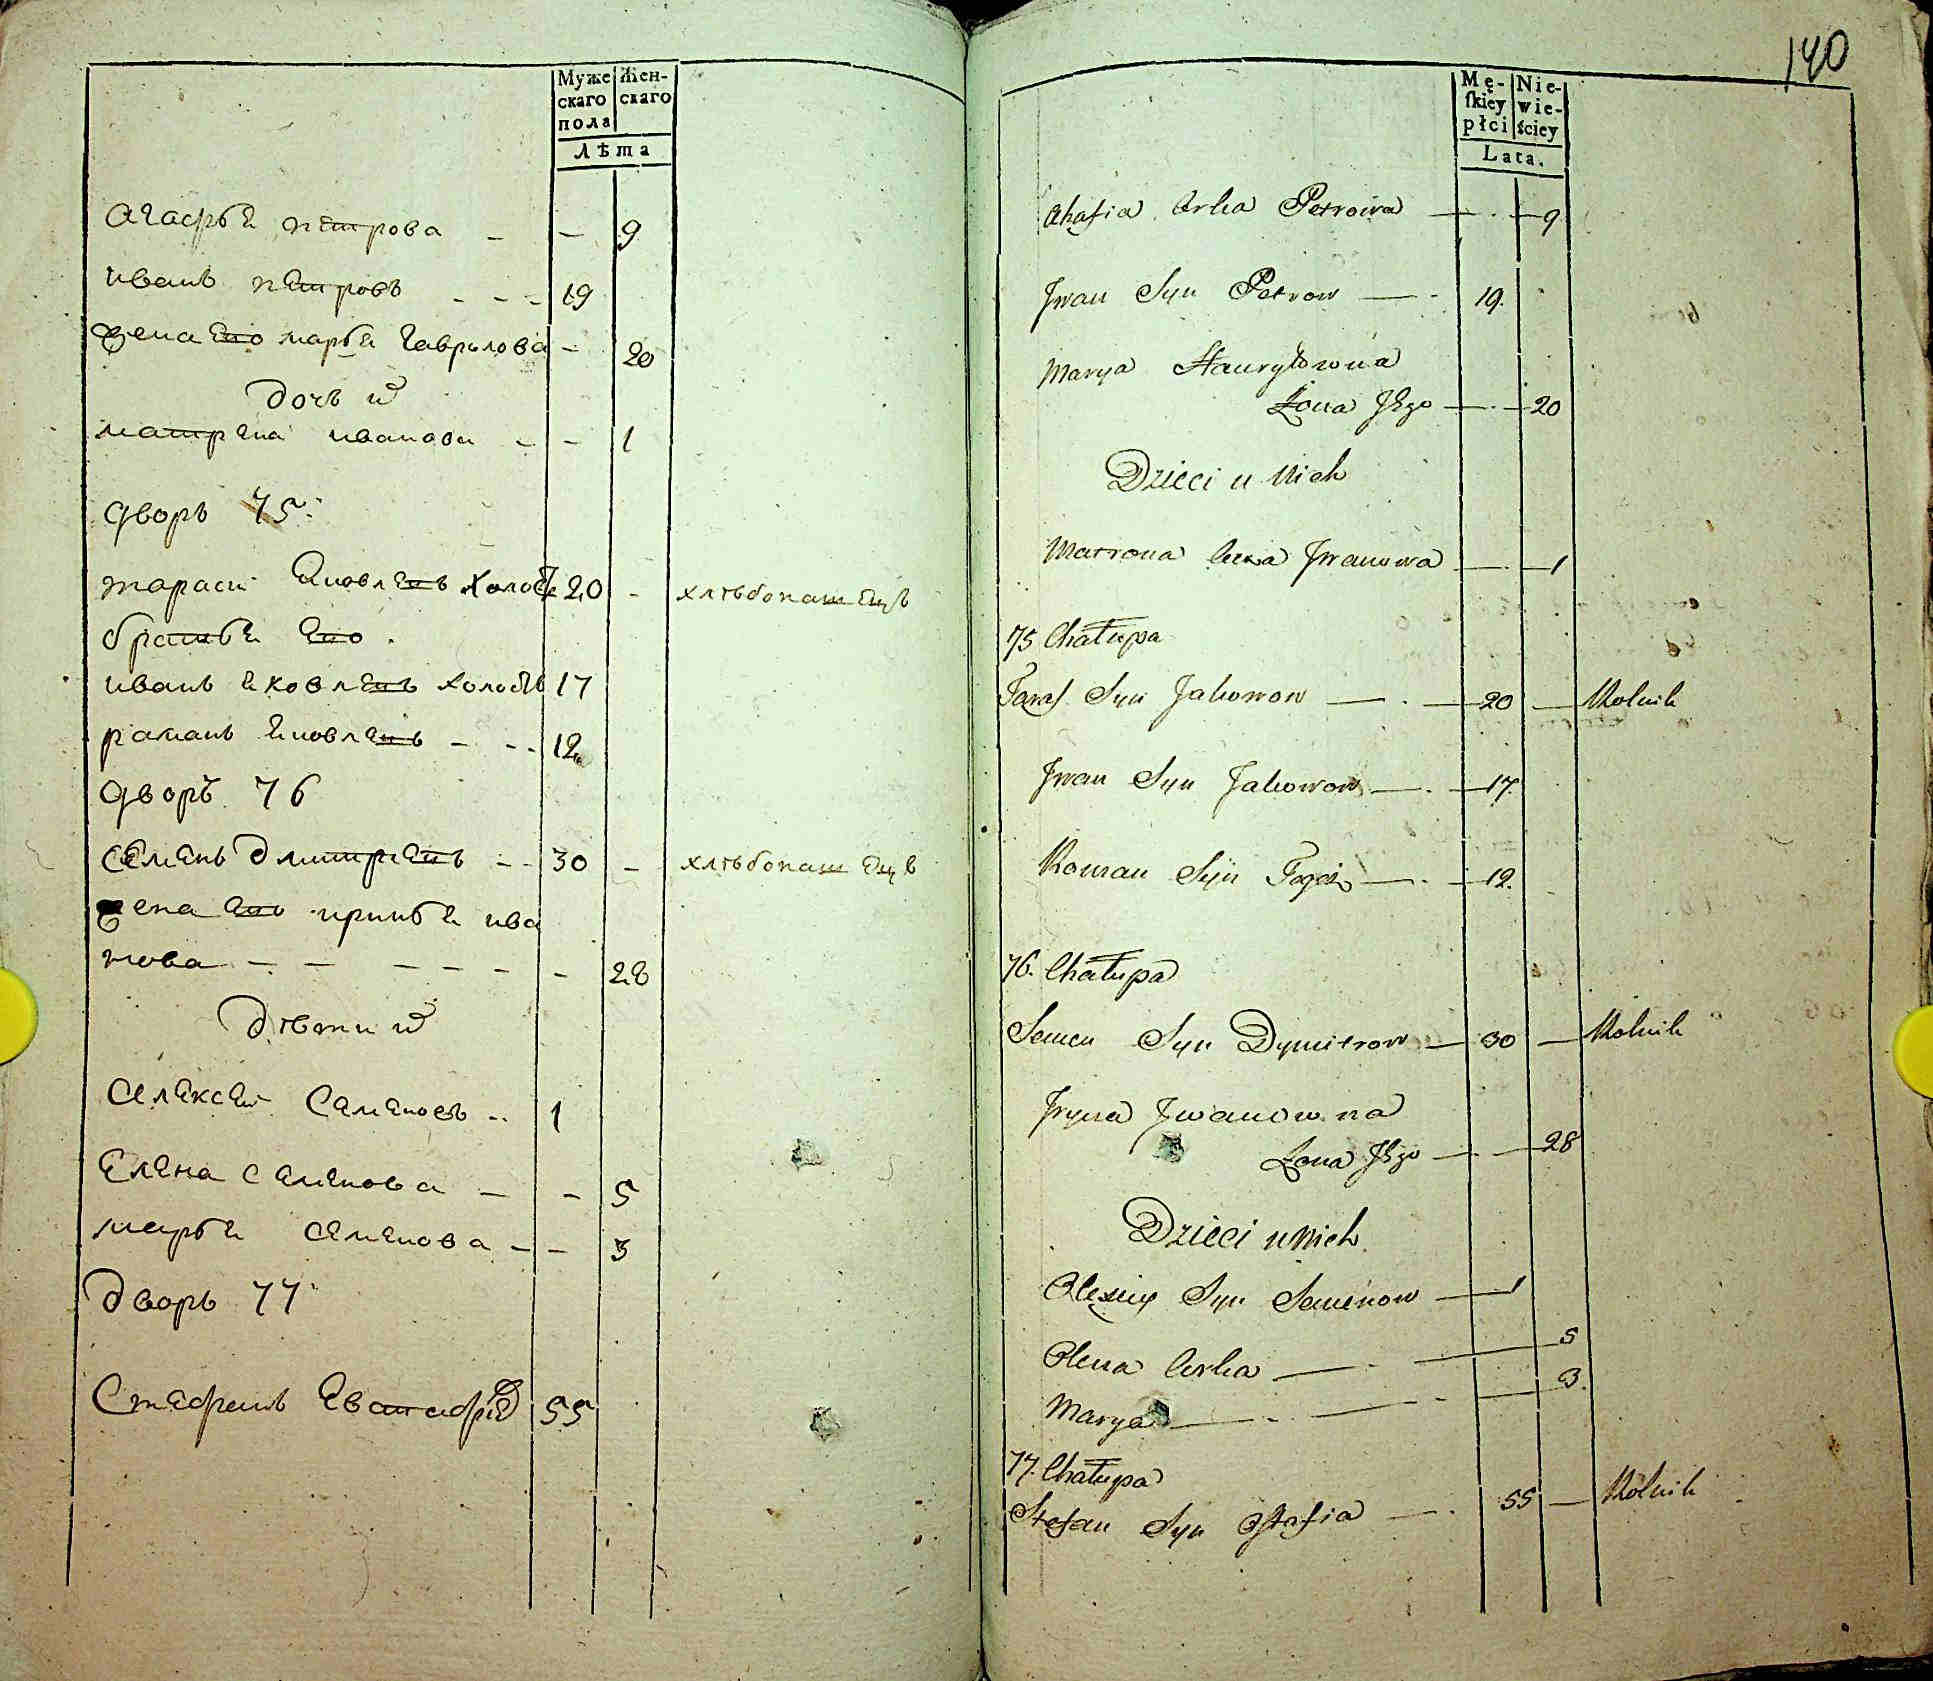 Муже Жен-
скаго скаго
пола
Лѣта
агафья петрова - - 9
иванъ петровъ - - - 19
жена ево марья гаврилова - 20
дочь их
матрена иванова - - 1
дворъ 75
тарасъ яковлевъ холостъ 20 - хлѣбопашецъ
братья ево
иванъ яковлевъ холостъ 17
раманъ яковлевъ - - - 12
дворъ 76
семенъ дмитриевъ - - 30 - хлѣбопашецъ
жена ево иринья ива
нова - - - - - - 28
дѣти их
алексей семеновъ - 1
елена семенова - - 5
марья семенова - - 3
дворъ 77
стефанъ 55
140
Mę- Nie-
skiey wie-
płci ściey
Lata.
Ahafia Crka Petrowa — 9
Jwan Syn Petrow — 19.
Marya Hauryłowna
Żona Jego — 20
Dzieci u Nich
Matrona Crka Jwanowa — 1
75 Chałupa
Taras Syn Jakowow — 20 — Rolnik
Jwan Syn Jakowow — 17.
Roman Syn Tegoż — 12.
76. Chałupa
Semen Syn Dymitrow — 30 — Rolnik
Jryna Jwanowna
Żona Jego — 28
Dzieci u Nich
Olexiey Syn Semenow — 1
Olena Crka — 5
Marya — 3.
77. Chałupa
Stefan Syn Ostafia — 55 — Rolnik